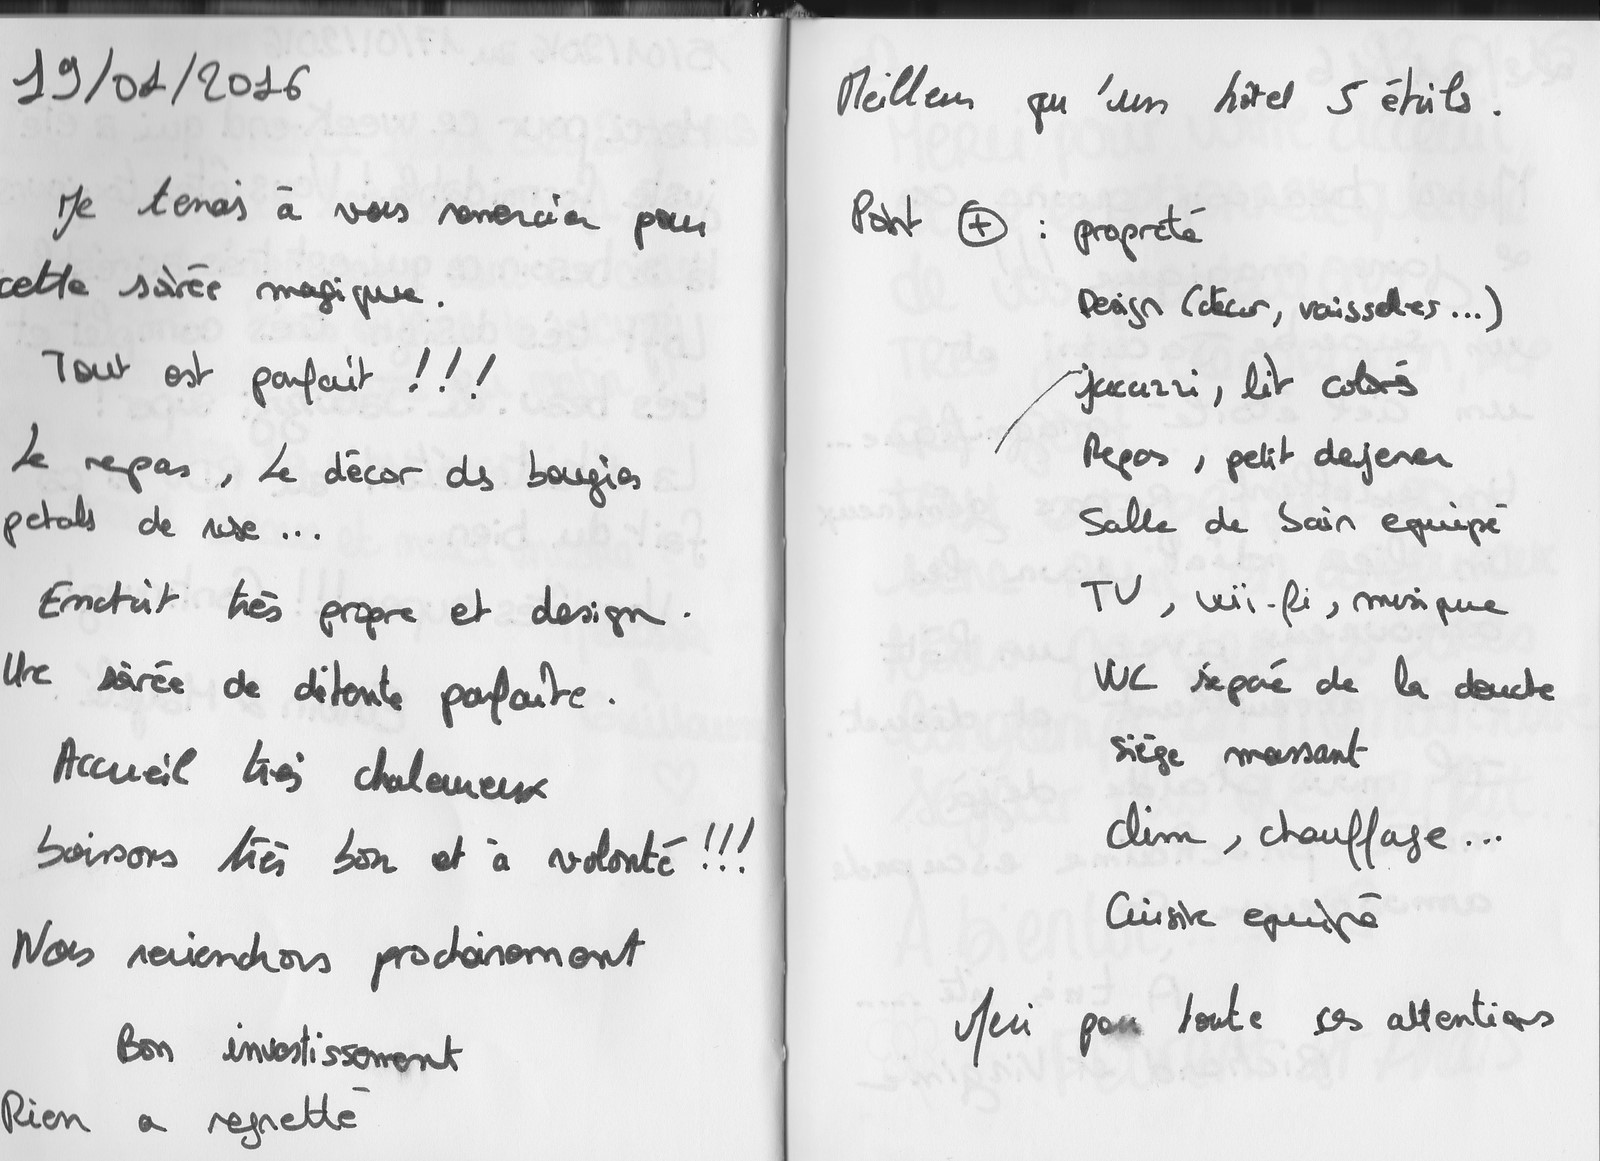 19/01/2016
Je tenais à vous remercier pour
cette soirée magique.
Tout est parfait !!!
Le repas, Le décor ds bougies
petals de rose...
Endroit très propre et design.
Une soirée de détente parfaite.
Accueil très chaleureux
boissons très bon et à volonté !!!
Nous reviendrons prochainement
Bon investissement
Rien a regretté
Meilleur qu'un hôtel 5 étoils.
Point + : propreté
Design (décor, vaisselles...)
jacuzzi, lit colorés
Repas, petit dejener
Salle de bain equipé
TV, wii-fi, musique
WC séparé de la douche
siège massant
clim, chauffage...
Cuisine equipé
Merci pour toute ses attentions